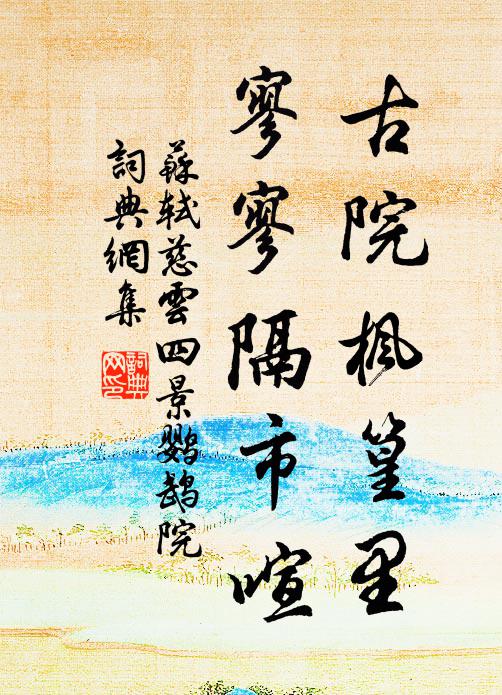 古院楓篁里
寥寥隔市喧
蘇軾慈雲四景鸚鵡院
詞典網集
詞典网印